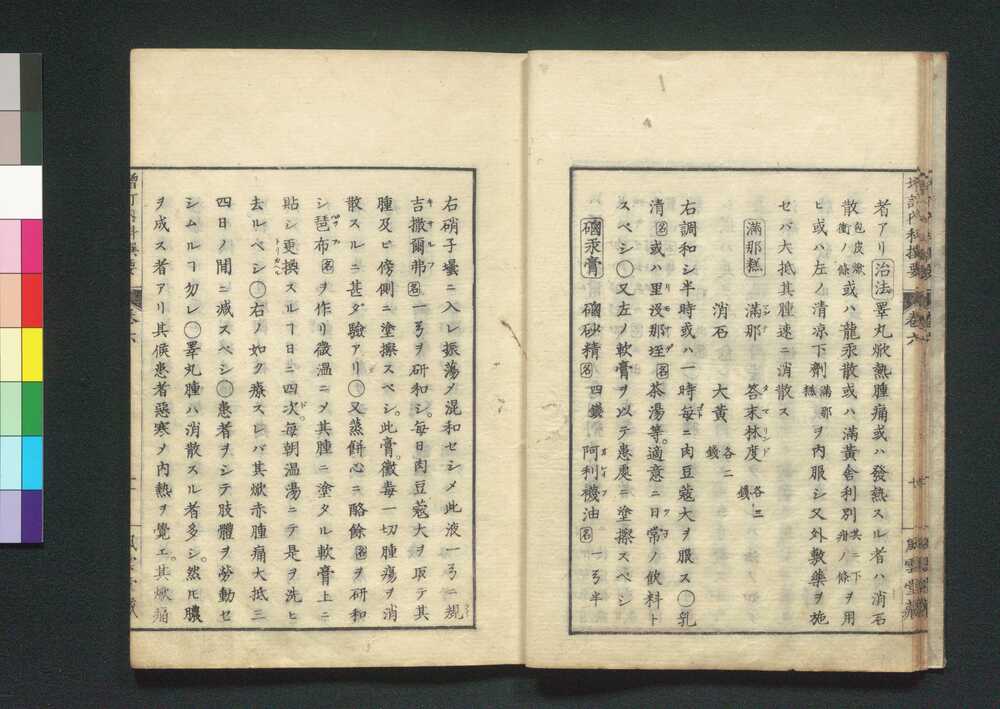 者アリ治法睪丸焮熱腫痛或ハ發熱スル者ハ消石
散包皮焮衝ノ條或ハ龍汞散或ハ滿黃舍利別共ニ下疳ノ條ヲ用
ヒ或ハ左ノ清凉下劑滿那糕ヲ内服シ又外敷藥ヲ施
セバ大抵其腫速ニ消散ス
滿那糕 滿那 答末林度各三錢
消石 大黃各二錢
右調和シ半時或ハ一時每ニ肉豆蔻大ヲ服ス〇乳
清名或ハ里没那垤名茶湯等適意ニ日常ノ飲料ト
スベシ〇又左ノ軟膏ヲ以テ患處ニ塗擦スベシ
硇汞膏 硇砂精名四錢 阿利襪油名一ヲ半
右硝子壜ニ入レ振蕩〆混和セシメ此液一ヲニ幾
吉撒爾弗名一ヲヲ研和シ每日肉豆蔻大ヲ取テ其
腫及ビ傍側ニ塗擦スベシ此膏黴毒一切腫瘍ヲ消
散スルニ甚ダ驗アリ〇又蒸餅心ニ酪餘名ヲ研和
シ琶布名ヲ作リ微温ニ〆其腫ニ塗タル軟膏上ニ
貼シ更換スルヿ日ニ四次每朝温湯ニテ是ヲ洗ヒ
去ルベシ〇右ノ如ク療スレバ其焮赤腫痛大抵三
四日ノ間ニ減スベシ〇患者ヲシテ肢體ヲ勞動セ
シムルヿ勿レ〇睪丸腫ハ消散スル者多シ然ㇾ𪜈膿
ヲ成ス者アリ其候患者惡寒〆内熱ヲ覺エ其焮痛